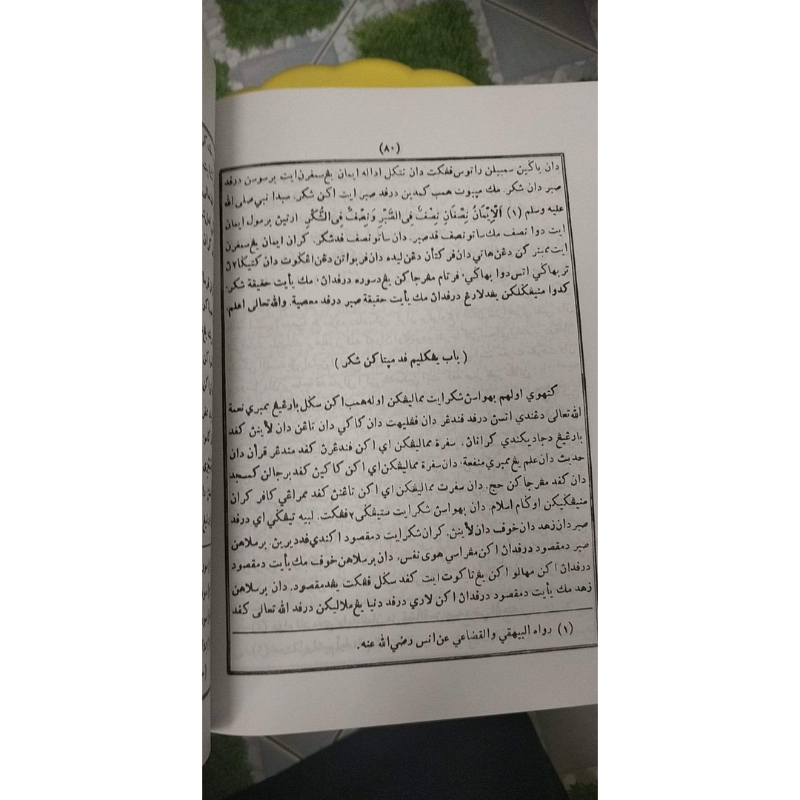 (٨٠)
دان باڬين سمبيلن راتوس ڤڠكت دان تتكل اداله ايمان يڠ سمڤرن ايت برسوسن درڤد
صبر دان شكر. مك ميبوت همب كمدين درڤد صبر ايت اكن شكر. سبدا نبي صلى الله
عليه وسلم (١) اَلْإِيْمَانُ نِصْفَانِ نِصْفٌ فِى الصَّبْرِ وَنِصْفٌ فِى الشُّكْرِ ارتين برمول ايمان
ايت دوا نصف مك ساتو نصف قد صبر. دان ساتو نصف قد شكر. كران ايمان يڠ سمڤرن
ايت ممبنركن دڠن هاتي دان ڤركتأن دڠن ليده دان ڤربواتن دڠن اڠڬوت دان كتيڬا٢ڽ
تربهاڬي اتس دوا بهاڬي، ڤرتام مڠرجاكن يڠ دسوره درڤداڽ، مك يأيت حقيقة شكر.
كدوا منيڠڬلكن يڠد لارڠ درڤداڽ مك يأيت حقيقة صبر درڤد معصية. والله تعالى اعلم.
(باب يڠكليم ڤد مپتاكن شكر)
كتهوي اولهم بهواسڽ شكر ايت مماليڠكن اوله همب اكن سڬل بارڠيڠ ممبري نعمة
الله تعالى دڠندي اتسڽ درڤد ڤندڠر دان ڤڠليهت دان كاكي دان تاڠن دان لأينڽ كڤد
بارڠيڠ دجاديكندي كراناڽ، سڤرة مماليڠكن اي اكن ڤندڠرڽ كڤد مندڠر قرآن دان
حديث دان علم يڠ ممبري منفعة، دان سڤرة مماليڠكن اي اكن كاكيڽ كڤد برجالن كمسجد
دان كڤد مڠرجاكن حج. دان سڤرت مماليڠكن اي اكن تاڠنڽ كڤد ممراڠي كافر كران
منيڠڬيكن اوڬام اسلام. دان بهواسڽ شكر ايت ستيڠڬي٢ ڤڠكت. لبيه تيڠڬي اي درڤد
صبر دان زهد دان خوف دان لأينڽ. كران شكر ايت دمقصود اكندي ڤد ديرين. برسلاهن
صبر دمقصود درڤداڽ اكن مڠراسي هوى نفس، دان برسلاهن خوف مك يأيت دمقصود
درڤداڽ اكن مهالو اكن يڠ تاكوت ايت كڤد سڬل ڤڠكت يڠد مقصود. دان برسلاهن
زهد مك يأيت دمقصود درڤداڽ اكن لاري درڤد دنيا يڠ ملاليكن درڤد الله تعالى كڤد
(١) رواه البيهقي والقضاعي عن انس رضي الله عنه.